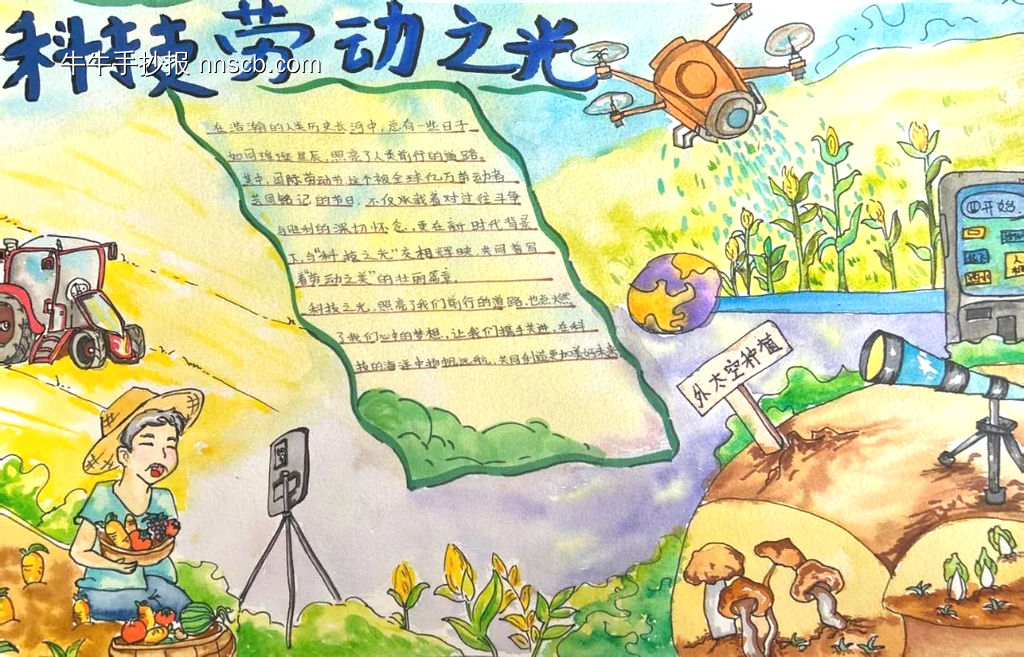 科技劳动之光
牛牛手抄报 nnscb.com
在浩瀚的人类历史长河中,总有一些日子
如同璀璨星辰,照亮了人类前行的道路。
其中,国际劳动节,这个被全球亿万劳动者
共同铭记的节日,不仅承载着对过往斗争
与胜利的深切怀念,更在新时代背景
下,与“科技之光”交相辉映,共同着写
着劳动之美”的壮丽篇章。
科技之光,照亮了我们前行的道路,也点燃
了我们心中的梦想,让我们携手共进,在科
技的海洋中扬帆远航,共同创造更加美好未来
开始
外太空种植